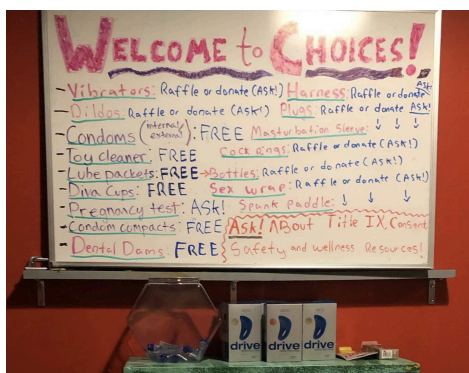 WELCOME to CHOICES!
- Vibrators: Raffle or donate (Ask!)
- Dildos: Raffle or donate (ASK!)
- Condoms (internal/external): FREE
- Toy cleaner: FREE
- Lube packets: FREE → Bottles: Raffle or donate (Ask!)
- Diva Cups: FREE
- Pregnancy test: ASK!
- Condom compacts: FREE
- Dental Dams: FREE
Harness: Raffle or donate Ask!
Plugs: Raffle or donate Ask!
Masturbation Sleeve: ↓ ↓ ↓
Cock rings: Raffle or donate (Ask!)
Sex wrap: Raffle or donate (Ask!)
Spank Paddle: ↓ ↓ ↓
Ask! About Title IX, Consent
Safety and wellness Resources!
drive
drive
drive